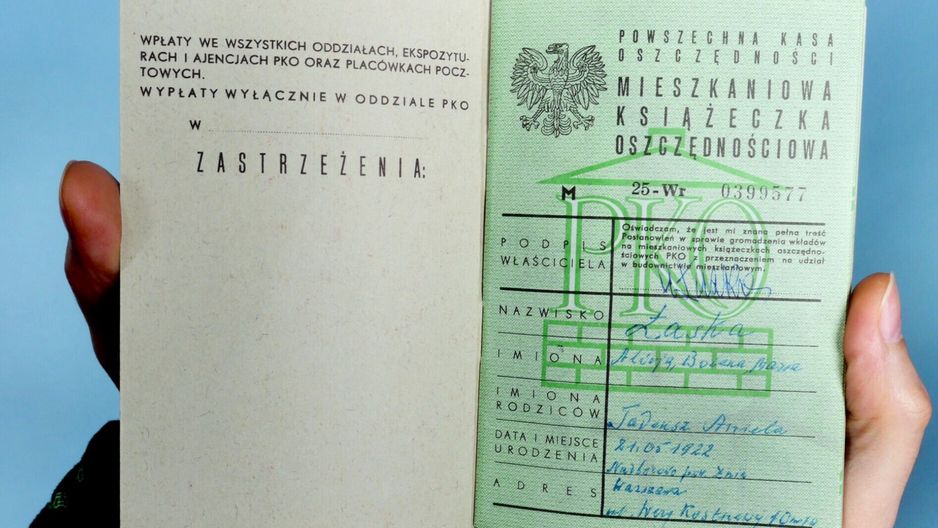 WPŁATY WE WSZYSTKICH ODDZIAŁACH, EKSPOZYTU-
RACH I AJENCJACH PKO ORAZ PLACÓWKACH POCZ-
TOWYCH.
WYPŁATY WYŁĄCZNIE W ODDZIALE PKO
W
ZASTRZEŻENIA:
POWSZECHNA KASA
OSZCZĘDNOŚCI
MIESZKANIOWA
KSIĄŻECZKA
OSZCZĘDNOŚCIOWA
M 25-Wr 0399577
PKO
PODPIS
WŁAŚCICIELA
Oświadczam, że jest mi znana pełna treść
Postanowień w sprawie gromadzenia wkładów
na mieszkaniowych książeczkach oszczędno-
ściowych PKO z przeznaczeniem na udział
w budownictwie mieszkaniowym.
NAZWISKO Łaska
IMIONA Alicja, Bożena Maria
IMIONA
RODZICÓW
Tadeusz Aniela
DATA I MIEJSCE
URODZENIA
21.05.1922
pow. Żnin
ADRES
Warszawa
ul.